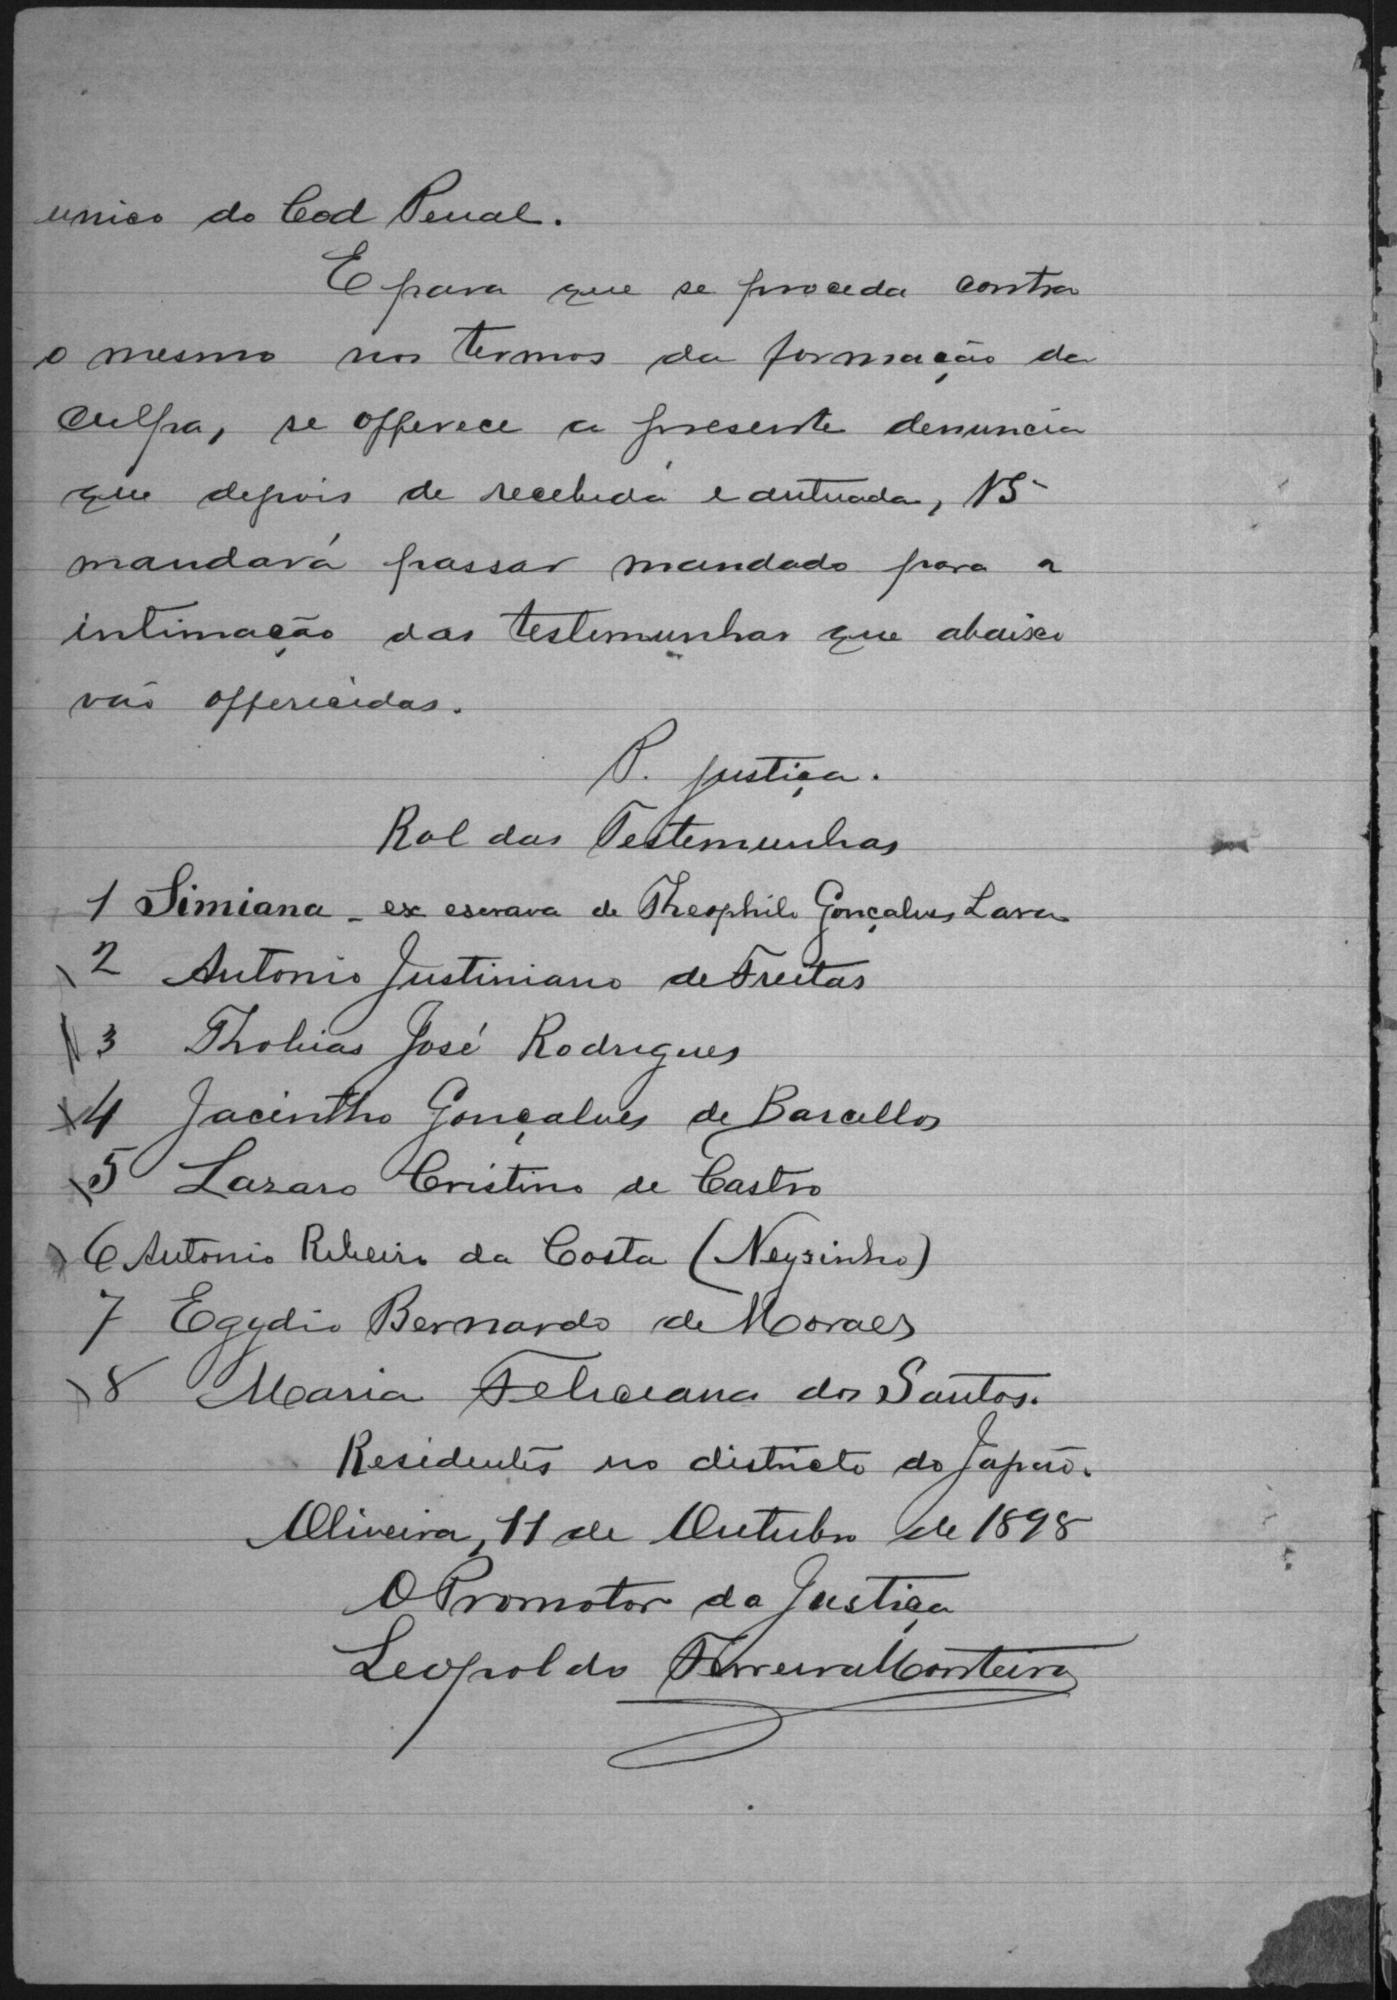 unico do Cod Penal.
E para que se proceda contra
o mesmo nos termos da formação da
culpa, se offerece a presente denuncia
que depois de recebida e autuada, VS
mandará passar mandado para a
intimação das testemunhas que abaixo
vão offerecidas.
P. justiça.
Rol das Testemunhas
1 Simiana - ex escrava de Theophilo Gonçalves Lara
2 Antonio Justiniano de Freitas
3 Thobias José Rodrigues
4 Jacintho Gonçalves de Barcellos
5 Lazaro Cristino de Castro
6 Antonio Ribeiro da Costa (Neysinho)
7 Egydio Bernardo de Moraes
8 Maria Feliciana dos Santos.
Residentes no districto do Japão.
Oliveira, 11 de Outubro de 1898
O Promotor da Justiça
Leopoldo Ferreira Monteiro